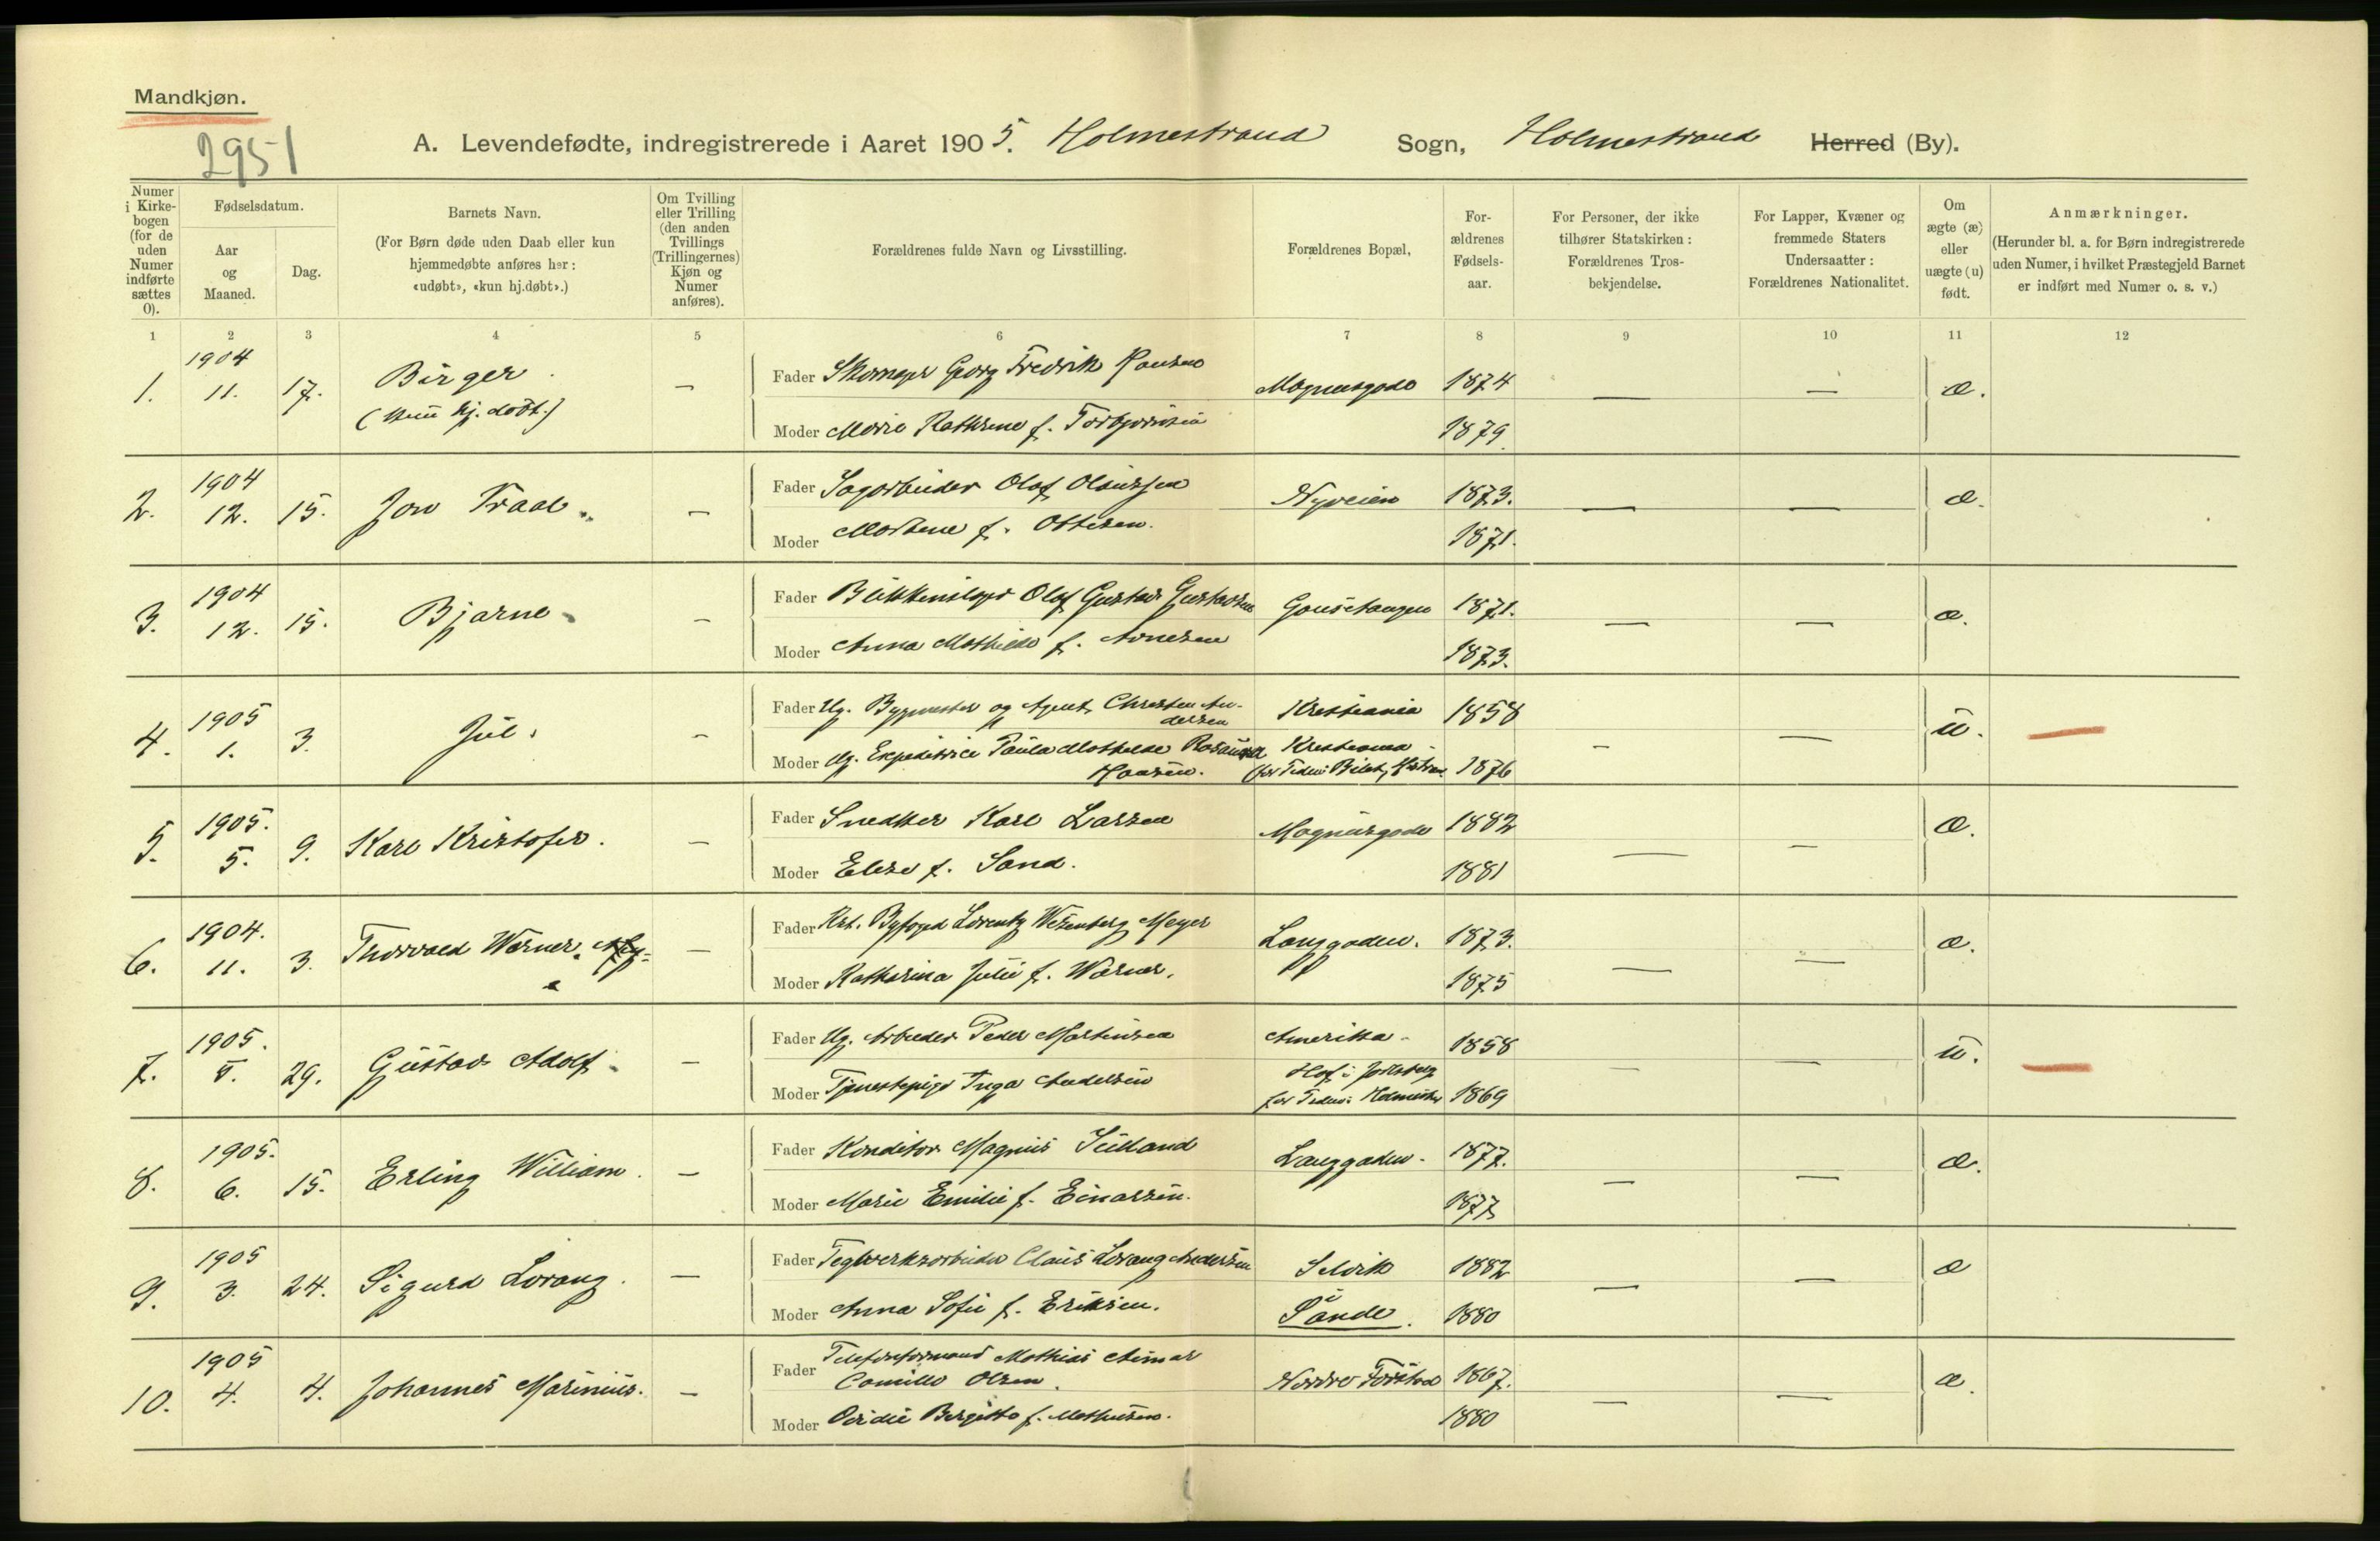 Mandkjøn.
2951
A. Levendefødte, indregistrerede i Aaret 1905. Holmestrand Sogn, Holmestrand Herred (By).
Numer i Kirkebogen (for de uden Numer indførte sættes 0).
Fødselsdatum.
Aar og Maaned.
Dag.
Barnets Navn.
(For Børn døde uden Daab eller kun hjemmedøbte anføres her: «udøbt», «kun hj.døbt».)
Om Tvilling eller Trilling (den anden Tvillings (Trillingernes) Kjøn og Numer anføres).
Forældrenes fulde Navn og Livsstilling.
Forældrenes Bopæl,
Forældrenes Fødselsaar.
For Personer, der ikke tilhører Statskirken: Forældrenes Trosbekjendelse.
For Lapper, Kvæner og fremmede Staters Undersaatter: Forældrenes Nationalitet.
Om ægte (æ) eller uægte (u) født.
Anmærkninger.
(Herunder bl. a. for Børn indregistrerede uden Numer, i hvilket Præstegjeld Barnet er indført med Numer o. s. v.)
1 2 3 4 5 6 7 8 9 10 11 12
1. 1904 11. 17. Birger. (kun hj. døbt.) — Fader Skomager Georg Fredrik Hansen Magnusgade 1874 — — æ.
Moder Marie Kathrine f. Torbjørnsen 1879.
2. 1904 12. 15. Jon Traal. — Fader Sagarbeider Olaf Olaussen Nyveien 1873. — — æ.
Moder Mathea f. Ottesen. 1871.
3. 1904 12. 15. Bjarne. — Fader Olaf Gustav Gustavsen 1871. — — æ.
Moder Anna Mathilde f. Arnesen 1873.
4. 1905 1. 3. Jul. — Fader Ug. Bygmester og Agent Christen Andersen Kristiania 1858 — — u. —
Moder Ug. Expeditrice Paula Mathilde Hansen. Kristiania (for Tiden 1876
5. 1905. 5. 9. Karl Kristofer. — Fader Snedker Karl Larsen Magnusgade 1882 — — æ.
Moder Elise f. Sand. 1881
6. 1904. 11. 3. Thorvald Wærner. — Fader Kst. Byfoged Lorentz Wesenberg Meyer Langgaden. 1873. — — æ.
Moder Katharina Julie f. Wærner. 1875
7. 1905. 5. 29. Gustav Adolf. — Fader Ug. Arbeider Peder Martinsen Amerika. 1858 — — u. —
Moder Tjenestepige Inga Andersen Hof i Jarlsberg for Tiden: Holmestr. 1869
8. 1905. 6. 15. Erling William. — Fader Konditor Magnus Juland Langgaden. 1877. — — æ.
Moder Marie Emilie f. Einarsen. 1877
9. 1905 3. 24. Sigurd Lorang. — Fader Teglverksarbeider Claus Lorang Andersen Selvik 1882 — — æ
Moder Anna Sofie f. Eriksen. i Sande. 1880
10. 1905 4. 4. Johannes Marinius. — Fader Telefonformand Mathias Camillo Olsen. Nordre 1867. — — æ.
Moder Birgitte f. Mathisen. 1880